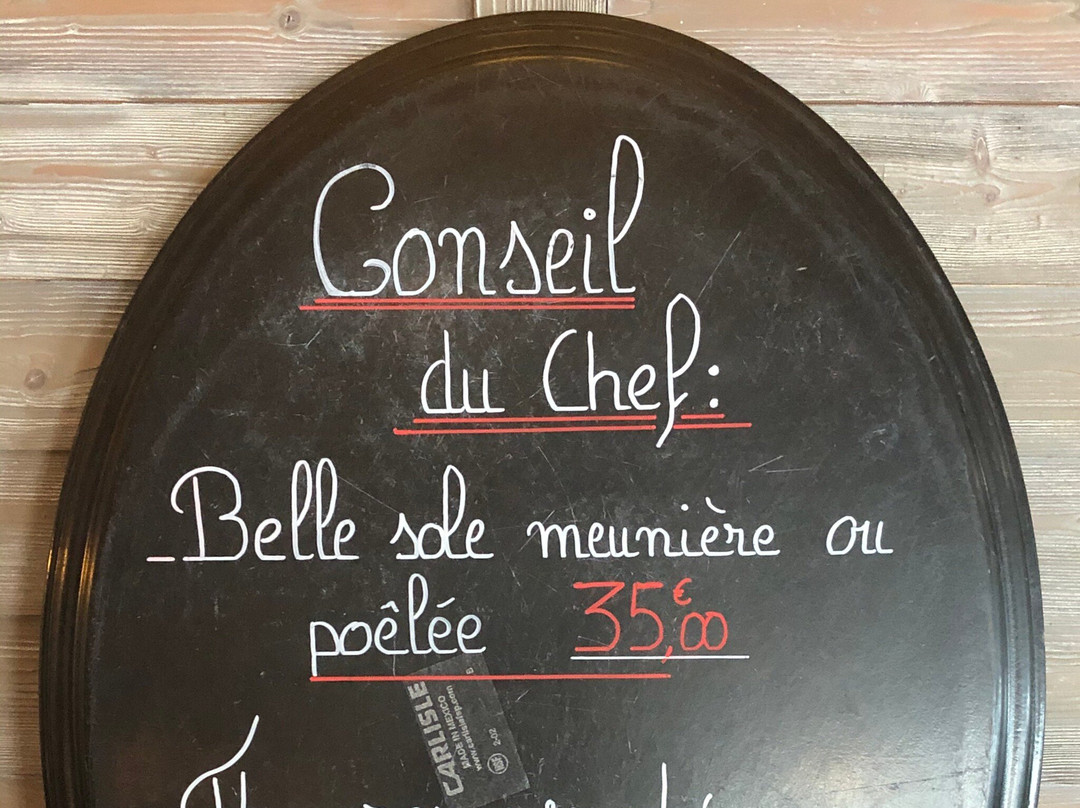 Conseil
du Chef:
-Belle sole meunière ou
poêlée 35,€00
CARLISLE
MADE IN MEXICO
www.carlislefsp.com
NSF 2-02